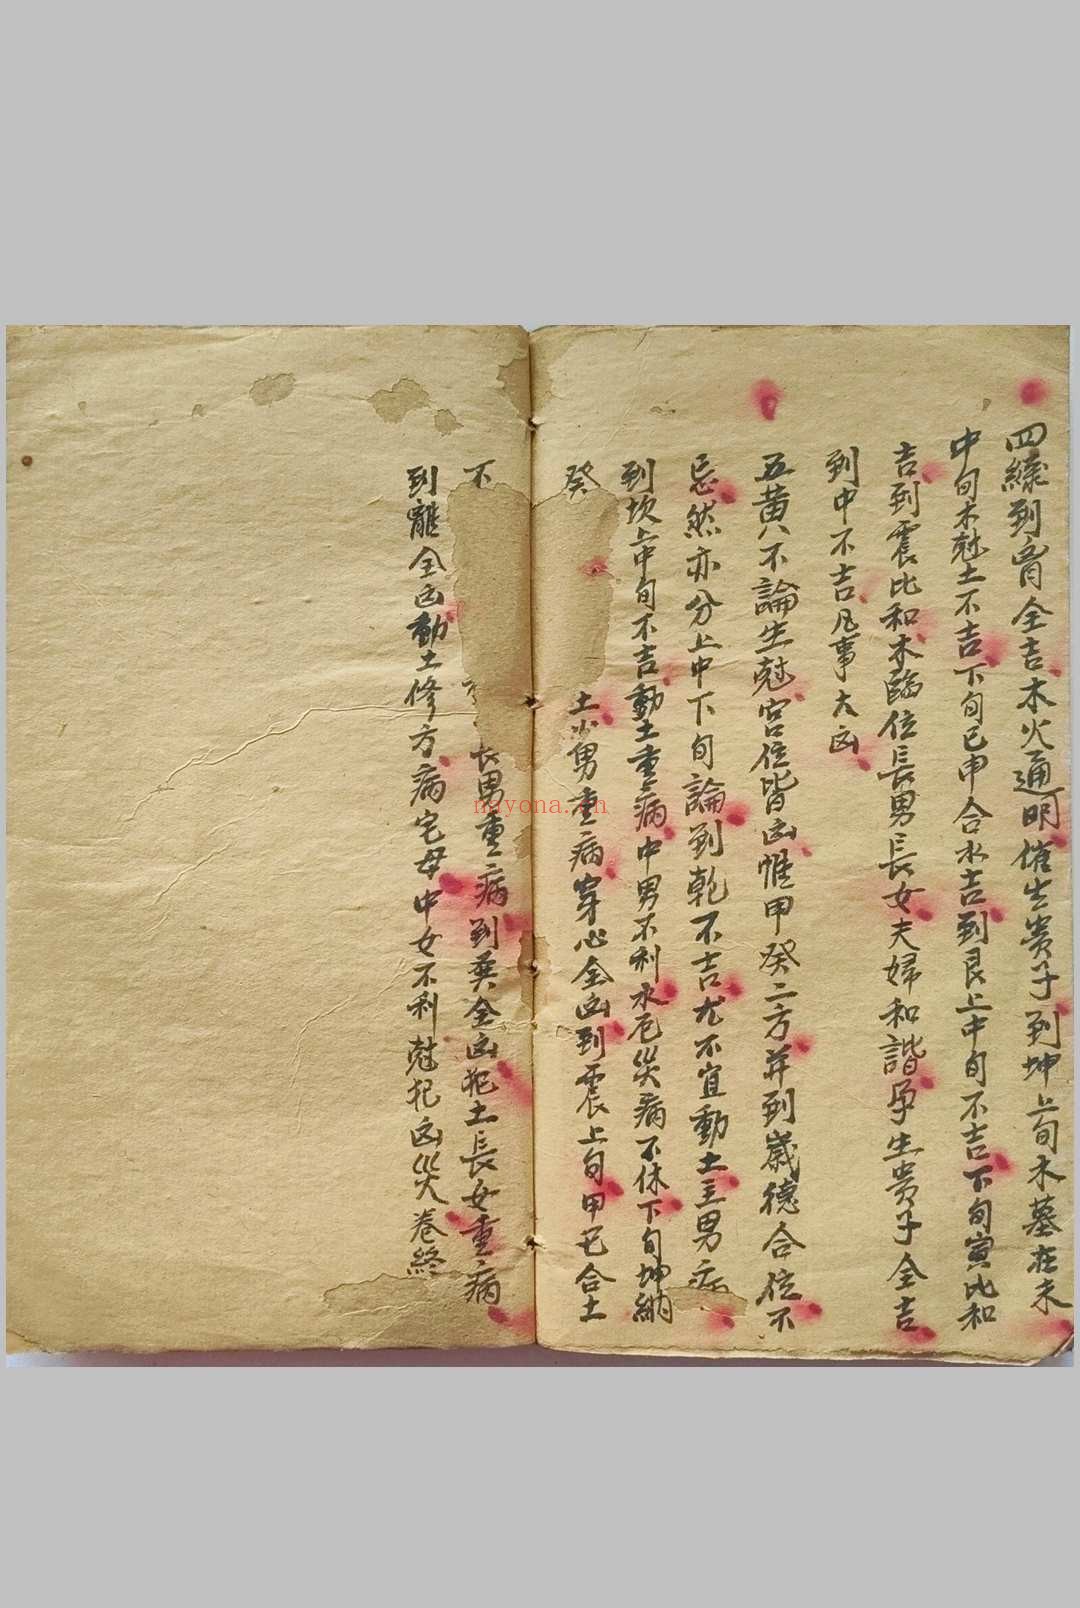 四綠到離全吉木火通明催生贵子到坤上旬木墓在未
中旬木尅土不吉下旬已申合水吉到艮上中旬不吉下旬寅比和
吉到震比和木臨位長男長女夫婦和諧孕生贵子全吉
到中不吉凡事大凶
五黄不論生尅宮位皆凶惟甲癸二方并到嵗德合位不
忌然亦分上中下旬論到乾不吉尤不宜動土主男病
到坎上中旬不吉動土重病中男不利水厄災病不休下旬坤納
癸 土少男重病穿心全凶到震上旬甲已合土
不 長男重病到巽全凶犯土長女重病
到離全凶動土修方病宅母中女不利尅犯凶災卷終
nayona.cn